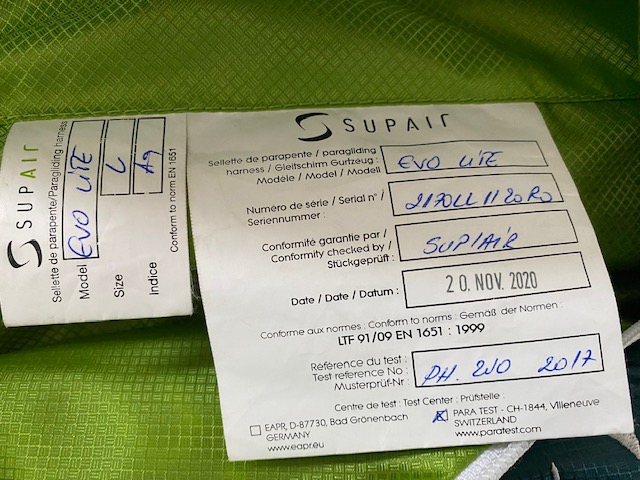 SUPAIR
Sellette de parapente/Paragliding harness
Model EVO LITE
Size L
Indice
Conform to norm EN 1651
SUPAIR
Sellette de parapente / paragliding
harness / Gleitschirm Gurtzeug :
Modèle / Model / Modell
EVO LITE
Numéro de série / Serial n° /
Seriennummer :
Conformité garantie par /
Conformity checked by /
Stückgeprüft :
SUP/AIR
Date / Date / Datum :
20. NOV. 2020
Conforme aux normes : Conform to norms : Gemäß der Normen :
LTF 91/09 EN 1651 : 1999
Référence du test :
Test reference No :
Musterprüf-Nr :
PH. 210 2017
Centre de test : Test Center : Prüfstelle :
EAPR, D-87730, Bad Grönenbach
GERMANY
www.eapr.eu
PARA TEST - CH-1844, Villeneuve
SWITZERLAND
www.paratest.com